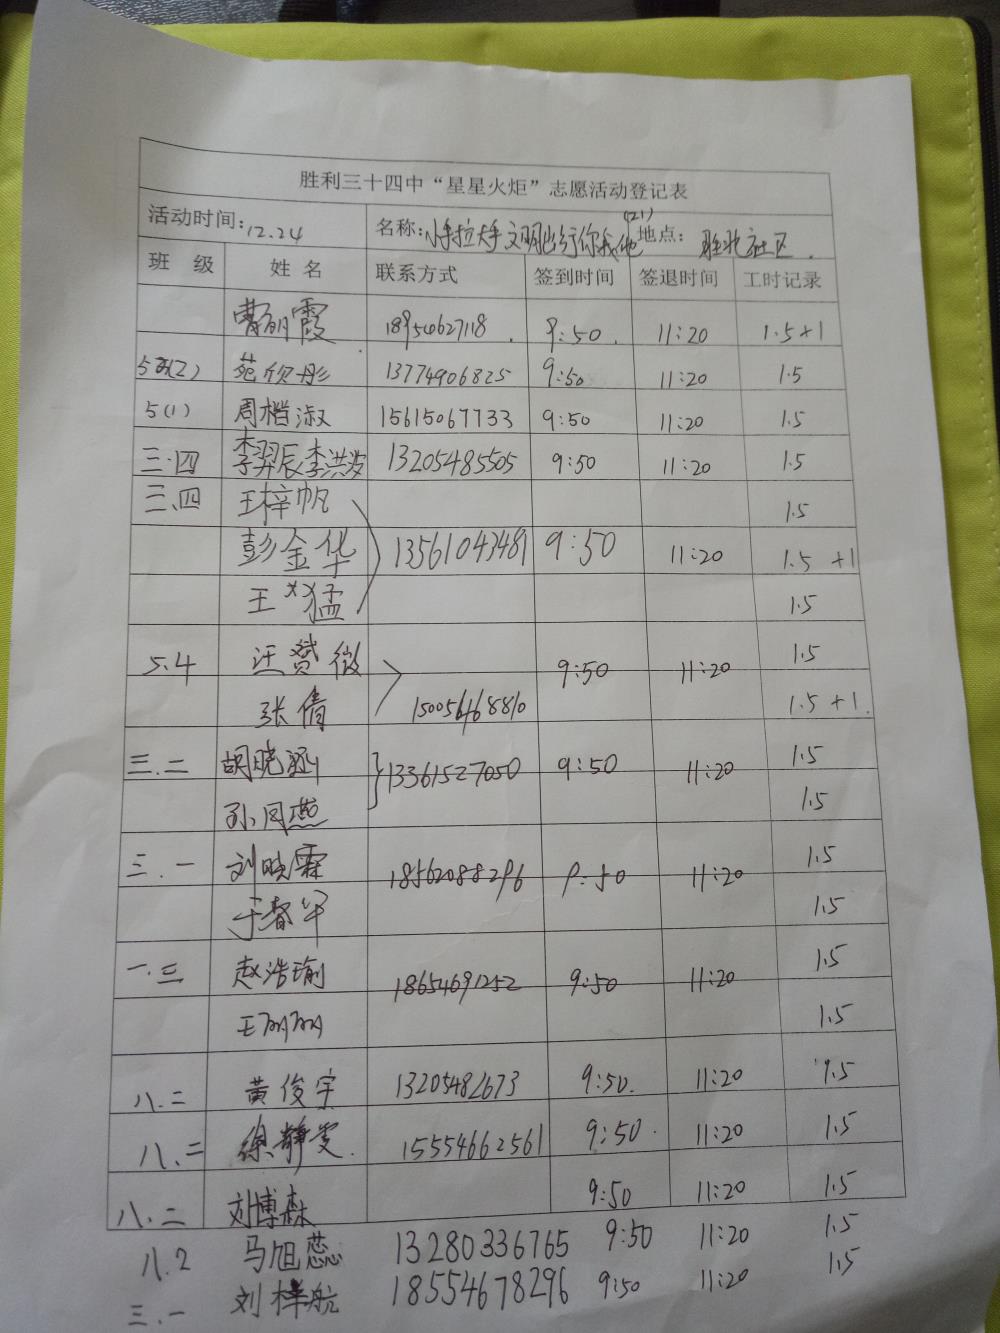 胜利三十四中“星星火炬”志愿活动登记表
活动时间:12.24 名称:小手拉大手文明出行你我他(21) 地点: 胜北社区.
班 级 姓 名 联系方式 签到时间 签退时间 工时记录
曹丽霞 18954627118. 9:50. 11:20 1.5+1
5(2) 苑欣彤 13774906825 9:50 11:20 1.5
5(1) 周楷淑 15615067733 9:50 11:20 1.5
三.四 李羿辰 李洪波 13205485505 9:50 11:20 1.5
三.四 王梓帆 1.5
彭金华 13561043481 9:50 11:20 1.5 +1
王猛 1.5
5.4 汪赟微 9:50 11:20 1.5
张倩 15005468810 1.5 +1.
三.二 胡晓涵 13361527050 9:50 11:20 1.5
孙同燕 1.5
三.一 刘晓霖 18562088296 9:50 11:20 1.5
于春军 1.5
一.三 赵浩瑜 18654691252 9:50 11:20 1.5
王丽丽 1.5
八.二 黄俊宇 13205482673 9:50. 11:20 1.5
八.二 徐静雯. 15554662561 9:50. 11:20 1.5
八.二 刘博森 9:50 11:20 1.5
八.2 马旭蕊 13280336765 9:50 11:20 1.5
三.一 刘梓航 18554678296 9:50 11:20 1.5